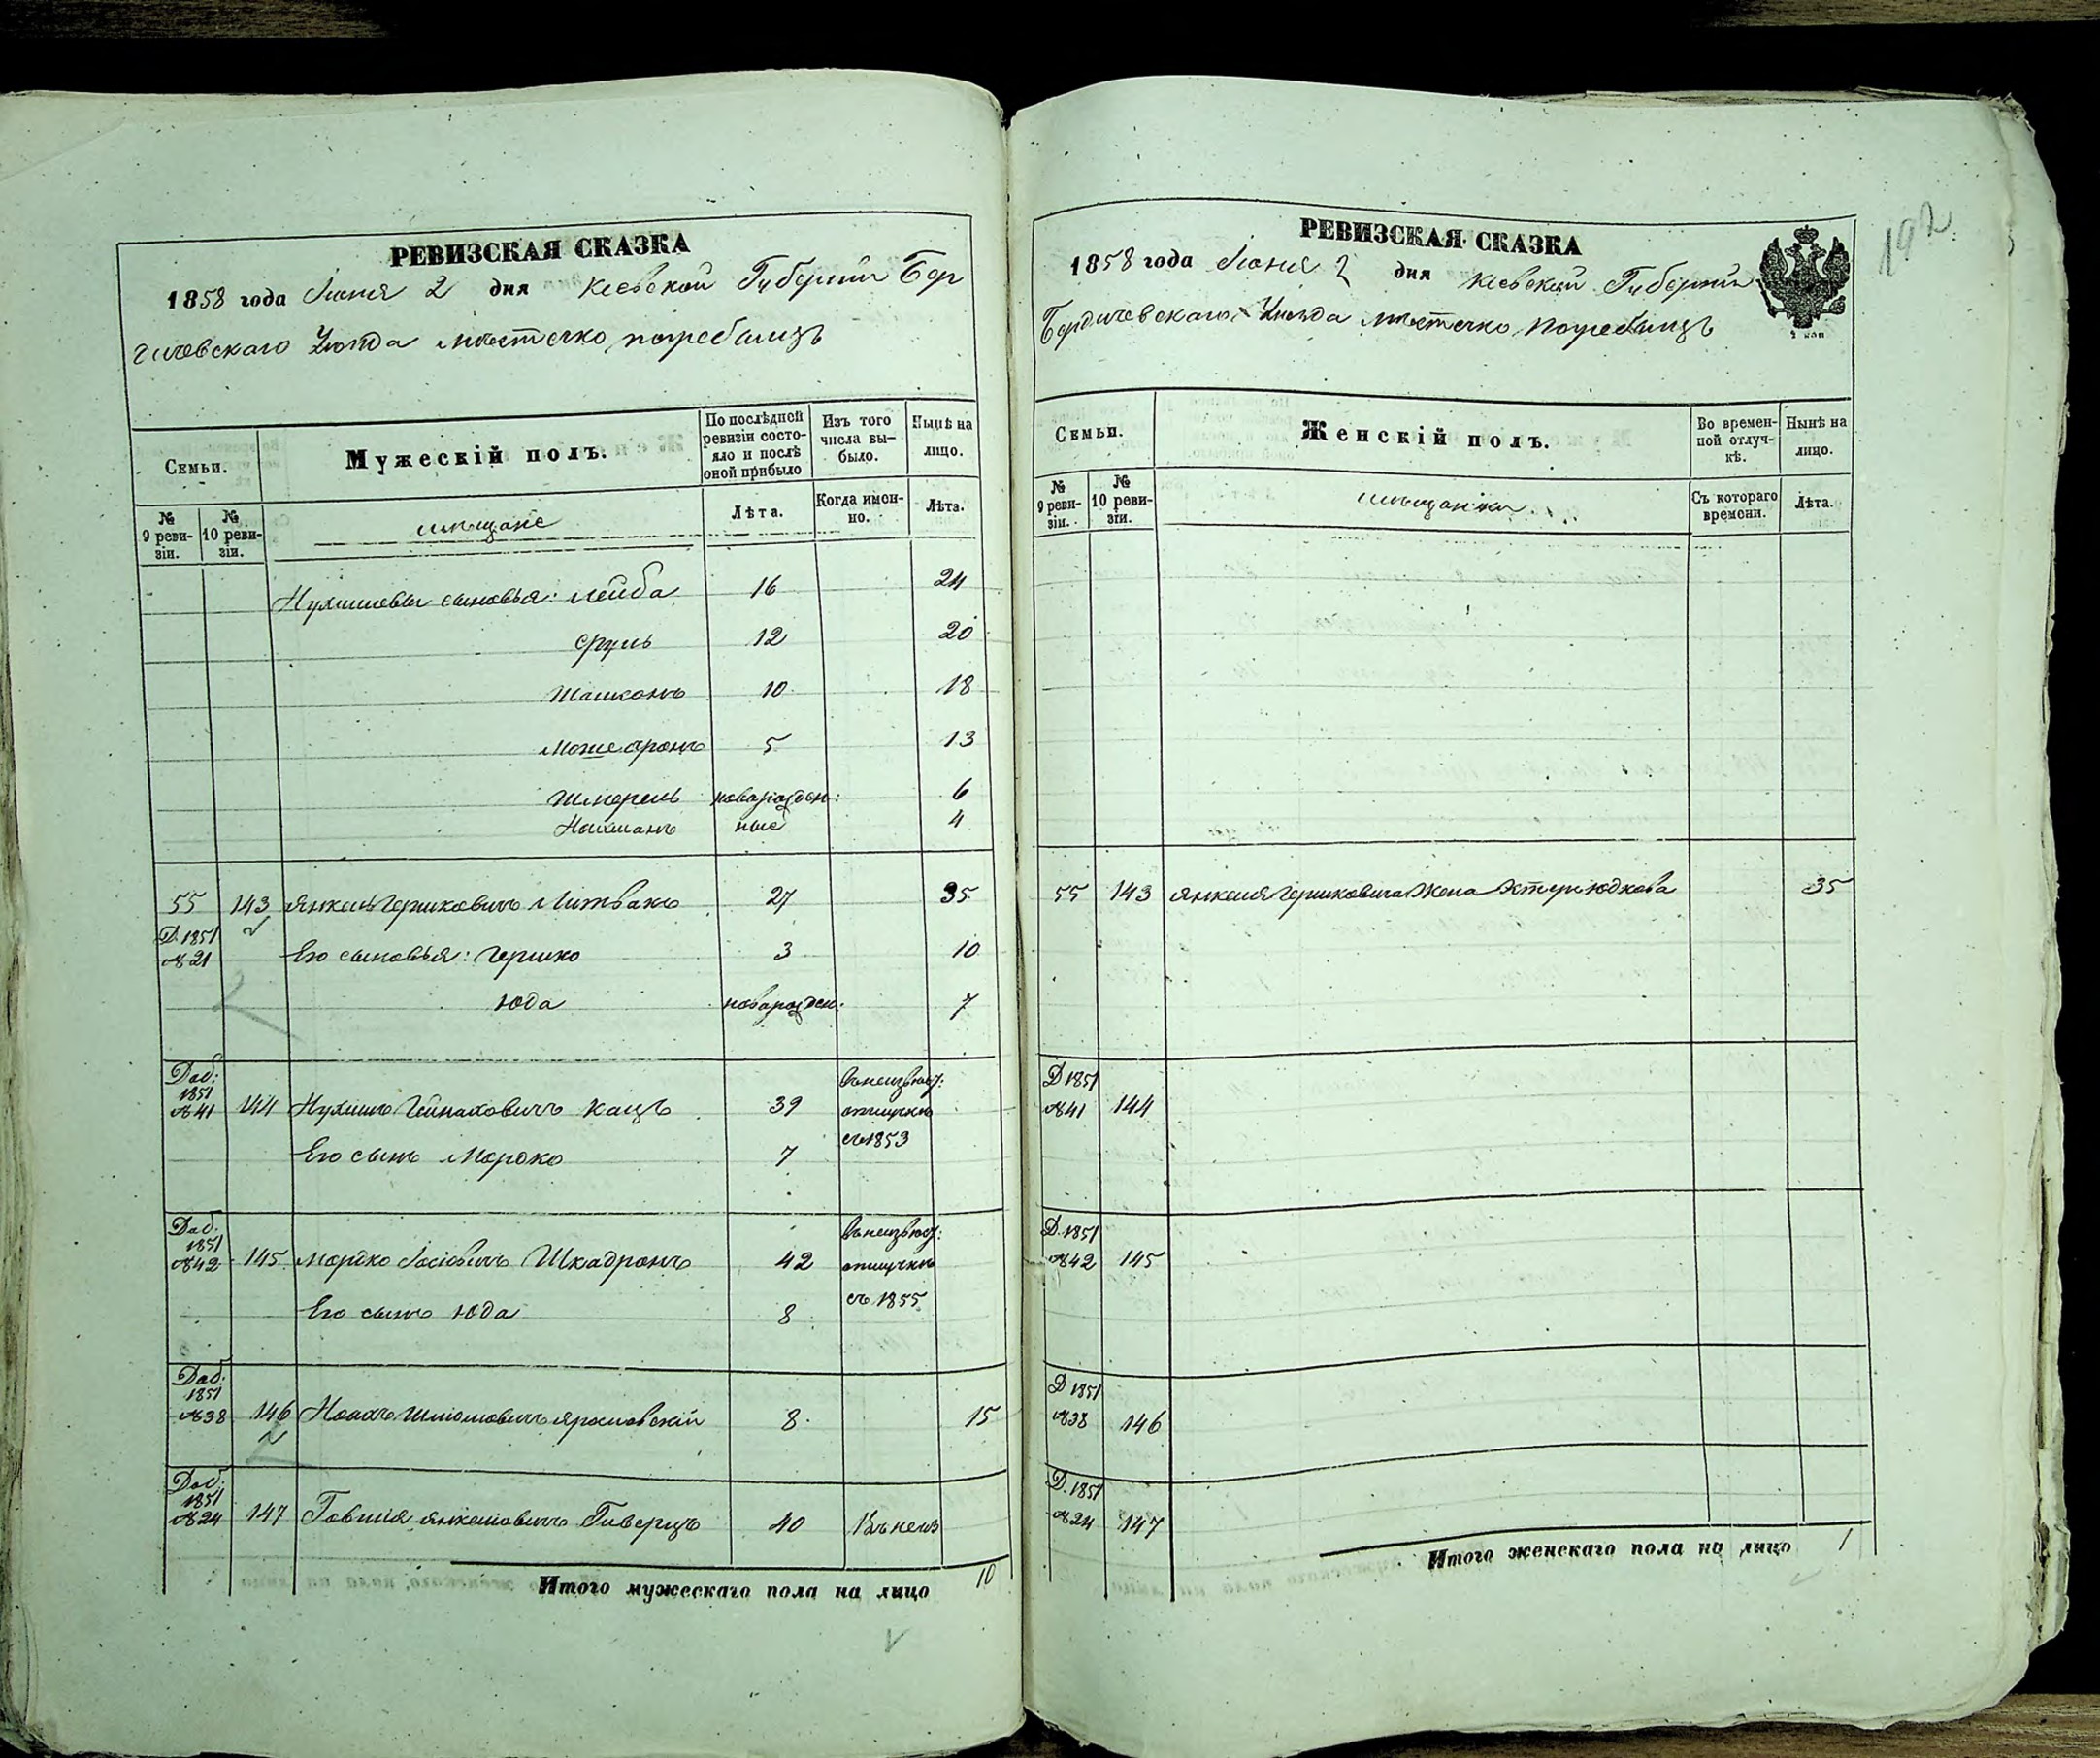 РЕВИЗСКАЯ СКАЗКА
1858 года Июня 2 дня Кіевской Губерніи Бер
дичевскаго Уѣзда мѣстечко Погребищъ
Семьи.
Мужескій полъ.
По послѣдней ревизіи состояло и послѣ оной прибыло
Изъ того числа вы-было.
Нынѣ на лицо.
№ 9 реви-зіи.
№ 10 реви-зіи.
мѣщане
Лѣта.
Когда имен-но.
Лѣта.
Нухимовы сыновья: Лейба 16 24
Сруль 12 20
10 18
Моше Аронъ 5 13
Шмерель новорожден: 6
Нахманъ ные 4
55 143 Янкель Гершковичъ Литвакъ 27 35
Д. 1851 №21 Его сыновья: Гершко 3 10
Юда новорожден: 7
Доб: 1851 №41 144 Нухимъ Кацъ 39 въ неизвѣст: отлучкѣ
Его сынъ Мордко 7 съ 1853
Доб. 1851 №42 145 Мордко Іосіовичъ Шкадронъ 42 въ неизвѣст: отлучкѣ
Его сынъ Юда 8 съ 1855
Доб. 1851 №38 146 8 15
Доб. 1851 №24 147 Янкеліовичъ 40 Въ неиз
Итого мужескаго пола на лицо 10
РЕВИЗСКАЯ СКАЗКА
1858 года Июня 2 дня Кіевской Губерніи
Бердичевскаго Уѣзда мѣстечко Погребищъ
2 коп
192
Семьи.
Женскій полъ.
Во времен-ной отлуч-кѣ.
Нынѣ на лицо.
№ 9 реви-зіи.
№ 10 реви-зіи.
мѣщанки
Съ котораго времени.
Лѣта.
55 143 Янкеля Гершковича Жена Эстеръ Юдкова 35
Д 1851 №41 144
Д. 1851 №42 145
Д 1851 №38 146
Д. 1851 №24 147
Итого женскаго пола на лицо 1